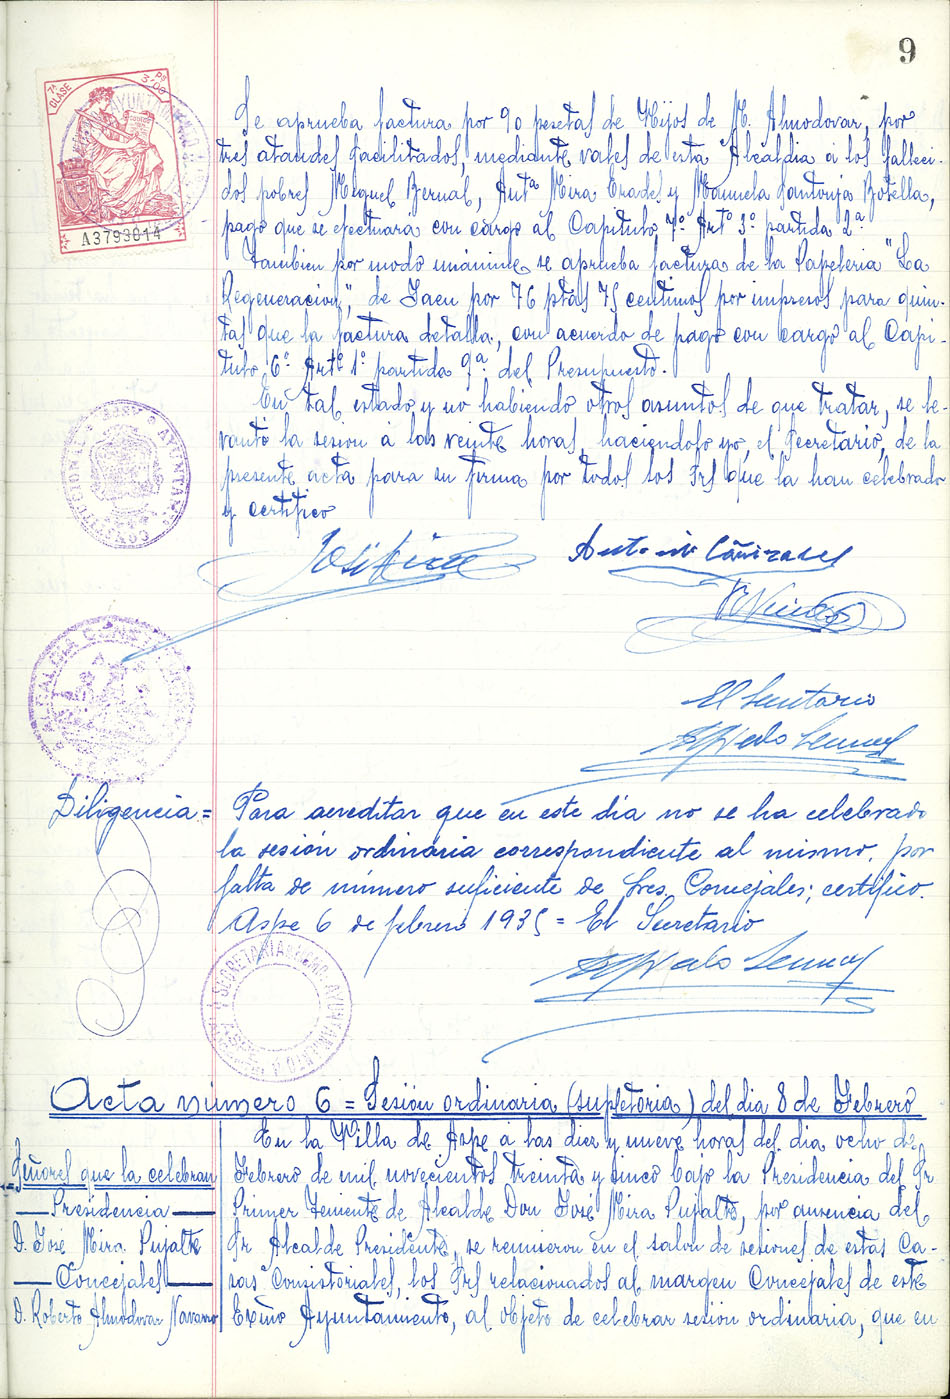 9
7ª CLASE
3'00 Pts
A3793814
Se aprueba factura por 90 pesetas de Hijos de M. Almodovar, por
tres ataudes facilitados, mediante vales de esta Alcaldia a los falleci-
dos pobres Miguel Bernal, Antª Mira Erades y Manuela Santonja Botella,
pago que se efectuara con cargo al Capitulo 7º Artº 3º partida 2ª
Tambien por modo unanime se aprueba factura de la Papeleria "La
Regeneracion", de Jaen por 76 ptas 75 centimos por impresos para quin-
tas que la factura detalla, con acuerdo de pago con cargo al Capi-
tulo 6º Artº 1º partida 9ª del Presupuesto.
En tal estado y no habiendo otros asuntos de que tratar, se le-
vantó la sesion á las veinte horas, haciendolo yo, el Secretario, de la
presente acta para su firma por todos los Srs que la han celebrado
y certifico
José Mira
Antonio Cañizares
El Secretario
Diligencia = Para acreditar que en este dia no se ha celebrado
la sesión ordinaria correspondiente al mismo, por
falta de número suficiente de Sres. Concejales; certifico.
Aspe 6 de febrero 1935 = El Secretario
SECRETARIA DEL AYUNTAMIENTO
ASPE
Acta número 6 = Sesión ordinaria (supletoria) del dia 8 de Febrero
Señores que la celebran
Presidencia
D. Jose Mira Pujalte
Concejales
D. Roberto Almodovar Navarro
En la Villa de Aspe a las diez y nueve horas del dia ocho de
Febrero de mil novecientos treinta y cinco bajo la Presidencia del Sr
Primer Teniente de Alcalde Don Jose Mira Pujalte, por ausencia del
Sr Alcalde Presidente, se reunieron en el salon de sesiones de estas Ca-
sas Consistoriales, los Srs relacionados al margen Concejales de este
Exmo Ayuntamiento, al objeto de celebrar sesion ordinaria, que en